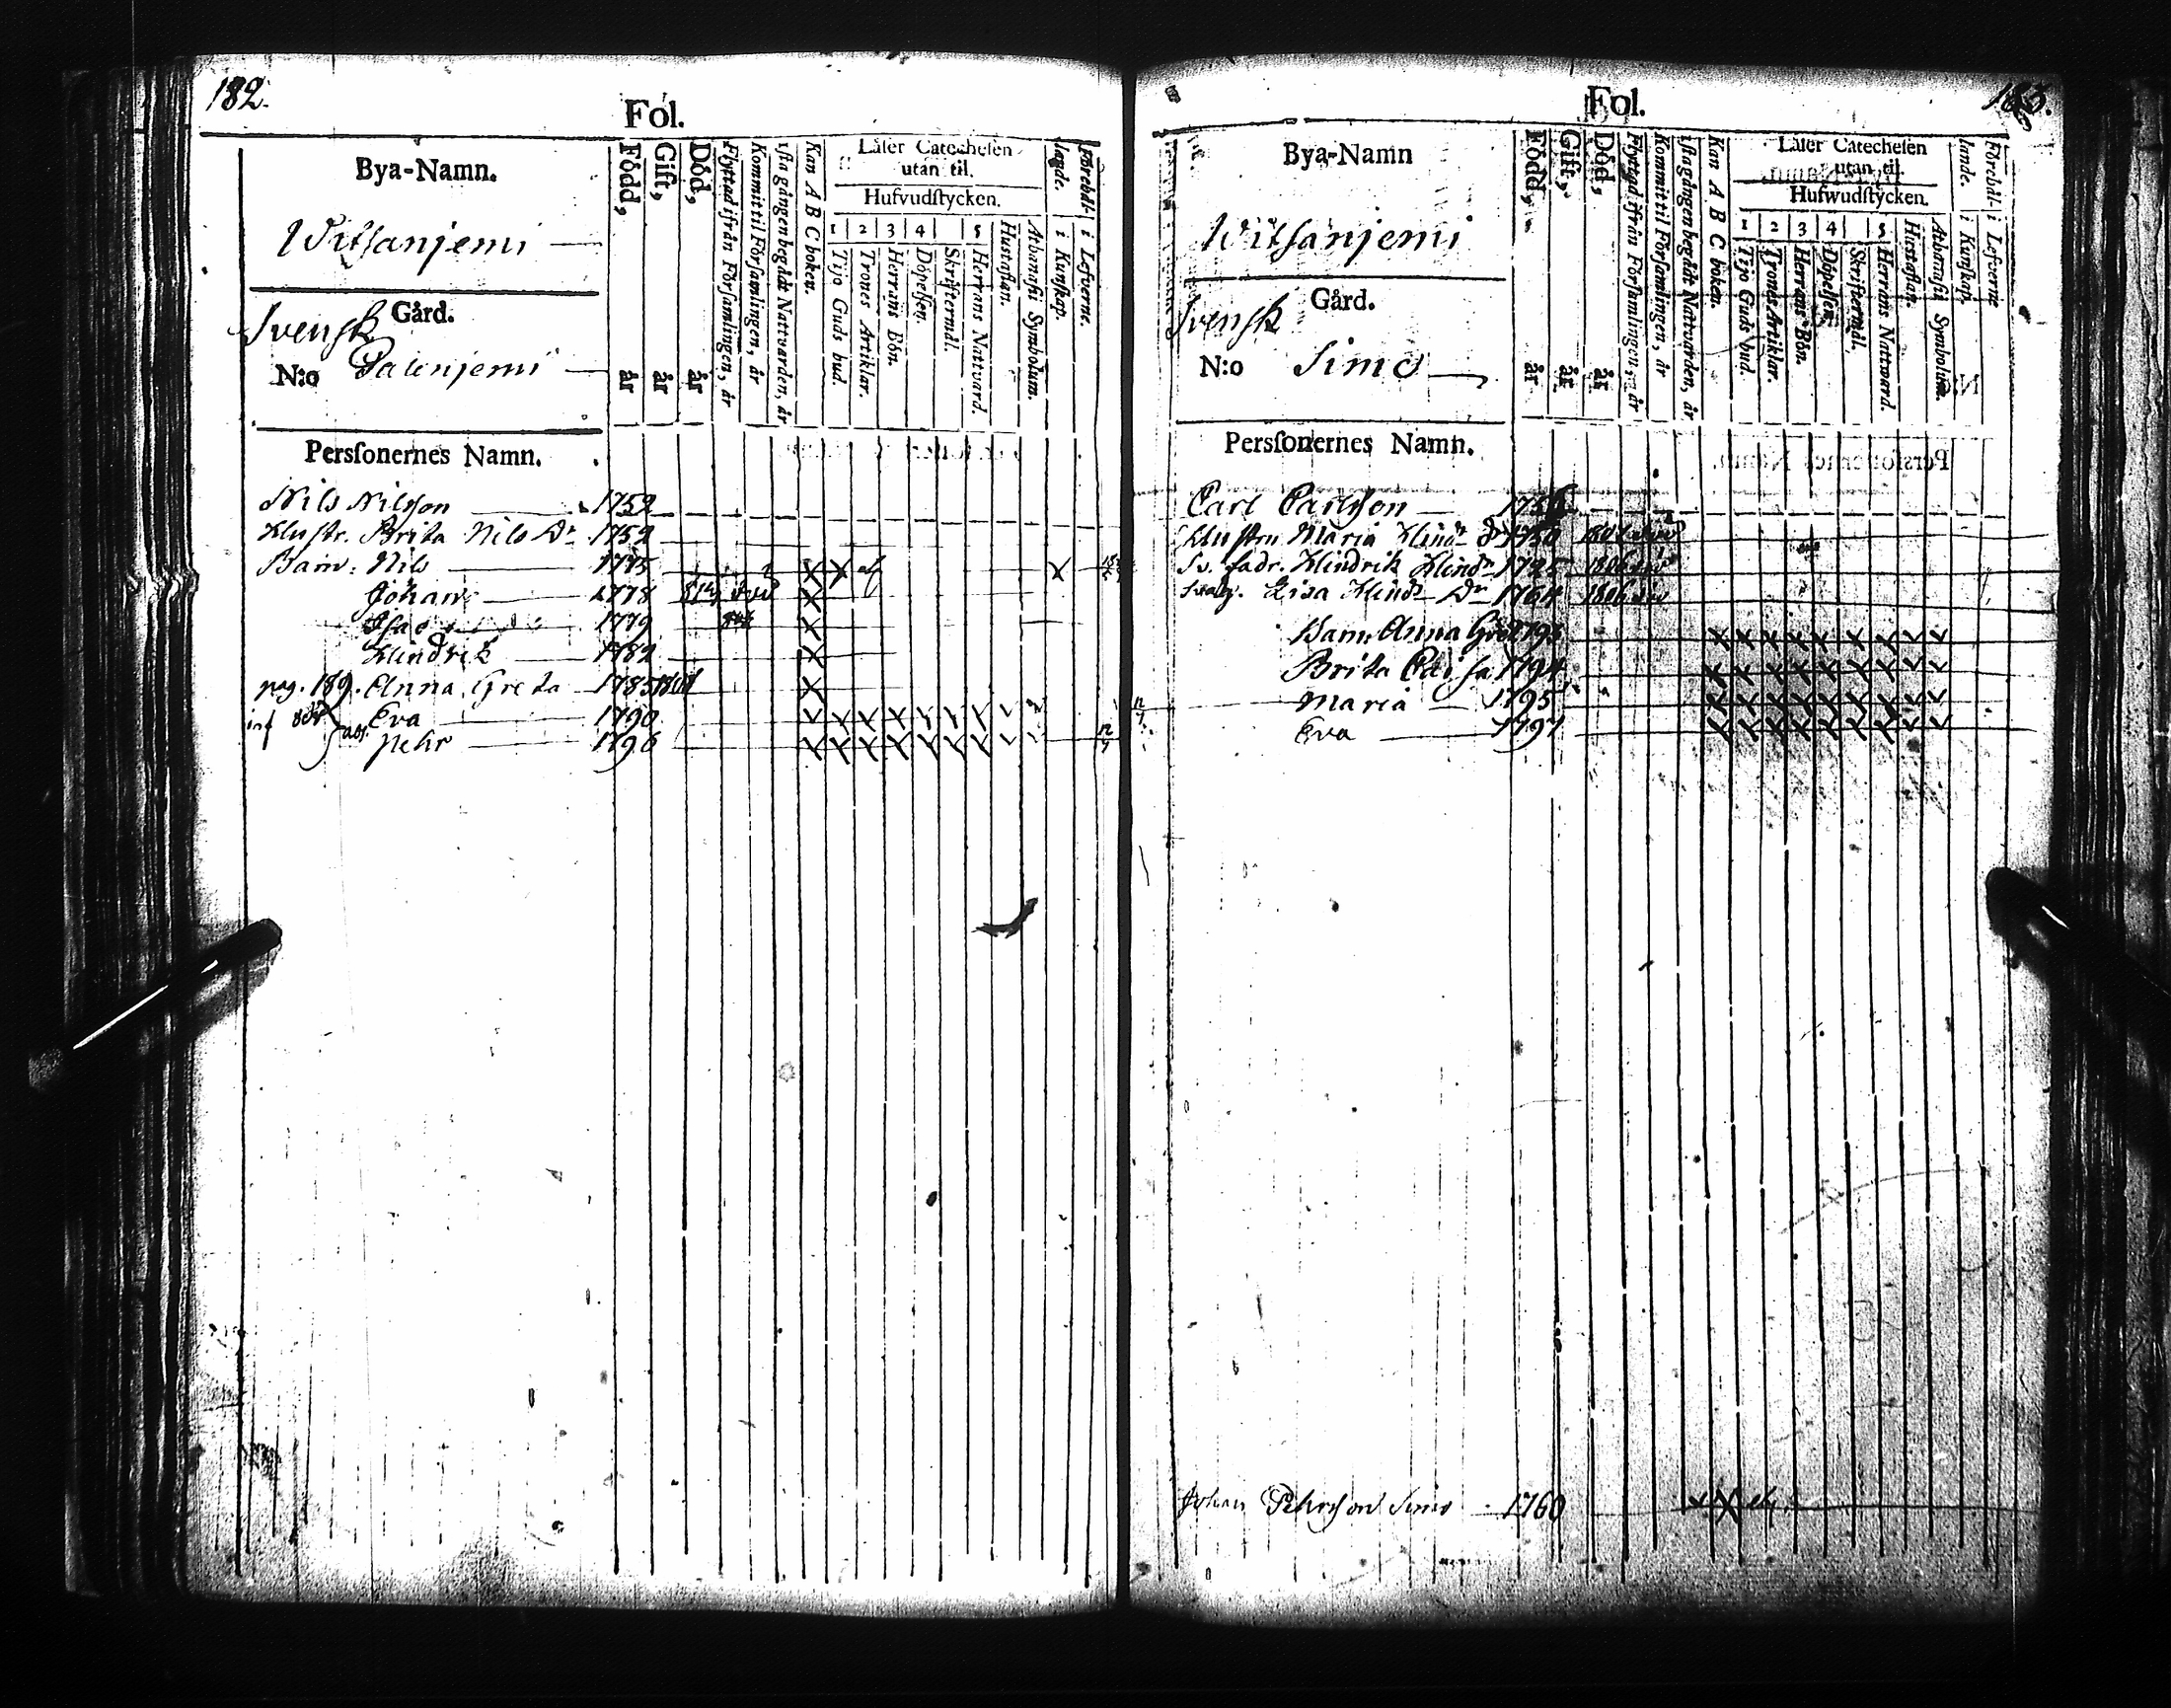 182.
Fol.
Bya-Namn.
Witsanjemi
Svensk
Gård.
N:o
Född, år
Gift, år
Död, år
Flyttad ifrån Församlingen, år
Kommit til Församlingen, år
1sta gången begådt Nattvarden, år
Kan A B C boken.
Läser Catechesen
utan til.
Hufvudstycken.
1 2 3 4 5
Tijo Guds bud.
Trones Artiklar.
Herrans Bön.
Döpelsen.
Skriftermål.
Herrans Nattvard.
Hustaflan.
Athanasii Symbolum.
i Kunskap.
i Lefverne.
Perssonernes Namn.
Nils Nilsson 1752
Hustr. Brita Nils Dr 1759
Barn: Nils 1775
Johan 1778
Isac 1779
Hindrik 1782
pag. 189. Anna Greta 1785
Eva 1790
Pehr 1796
Fol.
Bya-Namn
Witsanjemi
Svensk
Gård.
N:o Simo
Född, år
Gift, år
Död, år
Flyttad ifrån Församlingen, år
Kommit til Församlingen, år
1sta gången begådt Nattvarden, år
Kan A B C boken.
Läser Catechesen
utan til.
Hufwudstycken.
1 2 3 4 5
Tijo Guds bud.
Trones Artiklar.
Herrans Bön.
Döpelsen.
Skriftermål.
Herrans Nattvard.
Hustaflan.
Athanasii Symbolum.
Förehållande. i Kunskap.
i Lefverne
Perssonernes Namn.
Carl Carlsson
Hustru Maria Hindr 1750
Sv. fadr. Hindrik Hindr
Lisa Hindr Dr 1764
Barn: Anna
Brita Caisa 1794
Maria 1795
Eva 1797
Johan Pehrsson Simo 1760